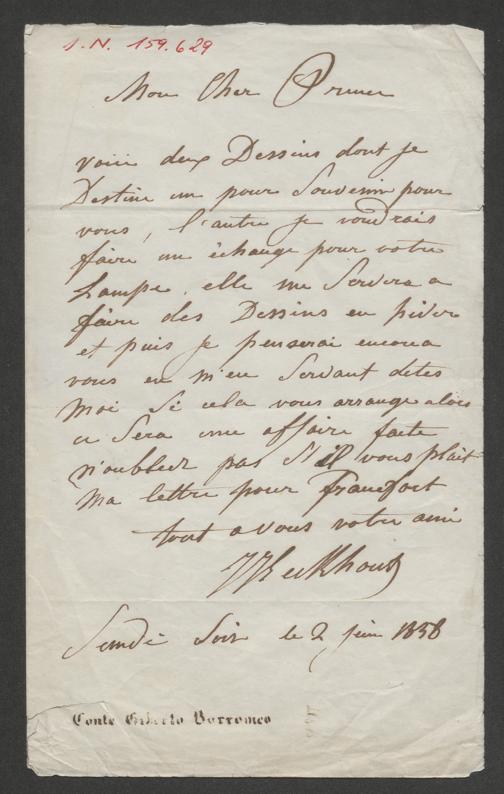 I.N. 159.629
Mon Cher Pruner
voici deux Dessins dont je
Destine un pour Souvenir pour
vous, l'autre je voudrais
faire un échange pour votre
Lampe. elle me Servira a
faire des Dessins en hiver
et puis je penserai encore a
vous en m'en Servant dites
moi Si cela vous arrange alors
ce Sera une affaire faite
n'oubliez pas S'il vous plait
Ma lettre pour Francfort
tout a vous votre ami
Eeckhout
Samedi Soir le 2 juin 1838
Conte Giberto Borromeo